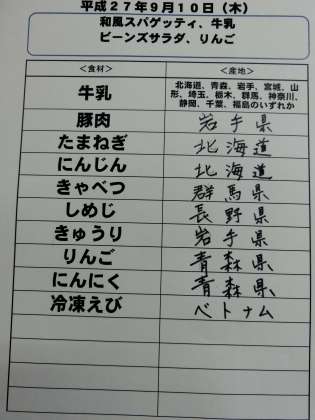 平成27年9月10日（木）
和風スパゲッティ、牛乳
ビーンズサラダ、りんご
＜食材＞ ＜産地＞
牛乳 北海道、青森、岩手、宮城、山
形、埼玉、栃木、群馬、神奈川、
静岡、千葉、福島のいずれか
豚肉 岩手県
たまねぎ 北海道
にんじん 北海道
きゃべつ 群馬県
しめじ 長野県
きゅうり 岩手県
りんご 青森県
にんにく 青森県
冷凍えび ベトナム